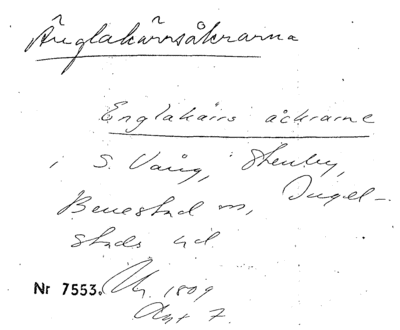 Änglakärrsåkrarna
Englakärrs åckrarne
i S. Vång, Stenby,
Benestad sn, Ingel-
stads hd.
Nr 7553. 1809
Akt 7